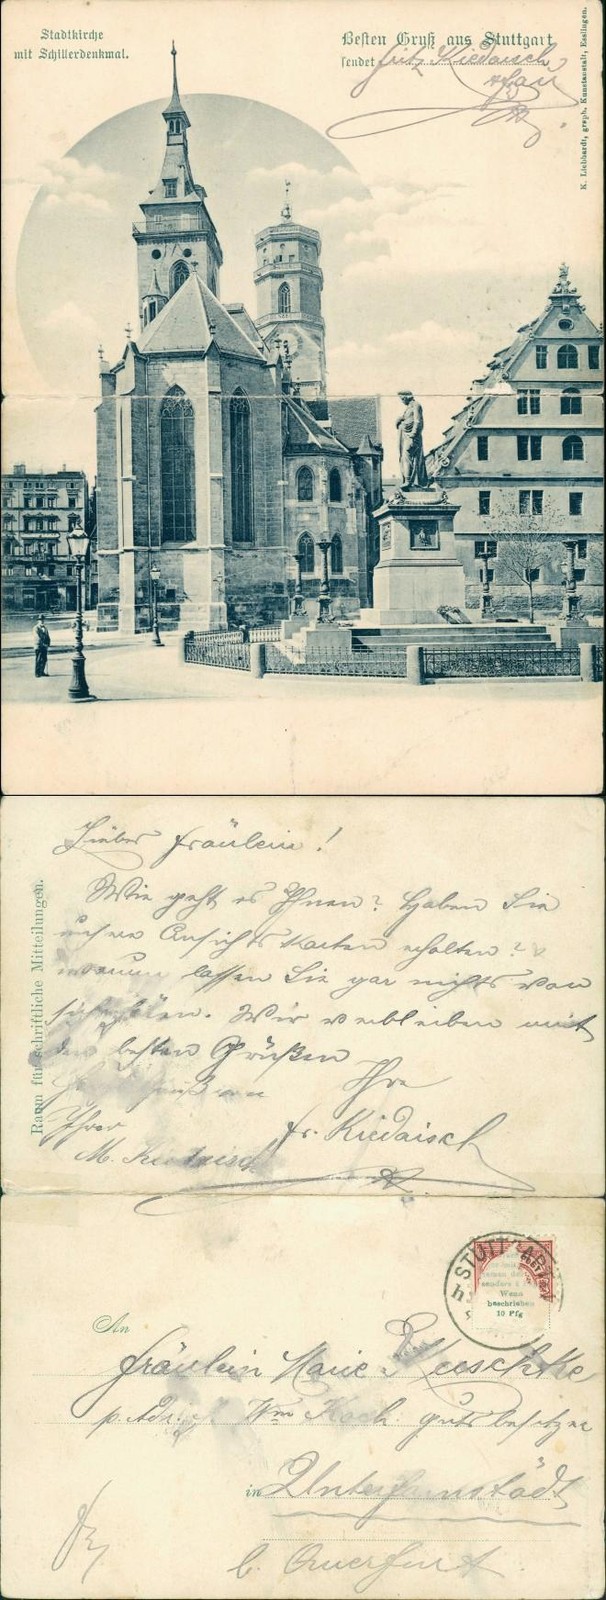 Stadtkirche
mit Schillerdenkmal.
Besten Gruß aus Stuttgart
sendet Fritz Kiedaisch
u. Frau
K. Liebhardt, graph. Kunstanstalt, Esslingen.
Raum für schriftliche Mitteilungen.
Liebes Fräulein!
Wie geht es Ihnen? Haben Sie
unsere Ansichtskarten erhalten?
warum lassen Sie gar nichts von
sich hören. Wir verbleiben mit
den besten Grüßen
Ihre
Ihrer
Fr. Kiedaisch
M. Kiedaisch
STUTTGART
Wenn
beschrieben
10 Pfg
An
Fräulein Marie
p. Adr. Wm Koch. Gutsbesitzer
in Unterfarnstädt
b. Querfurt.